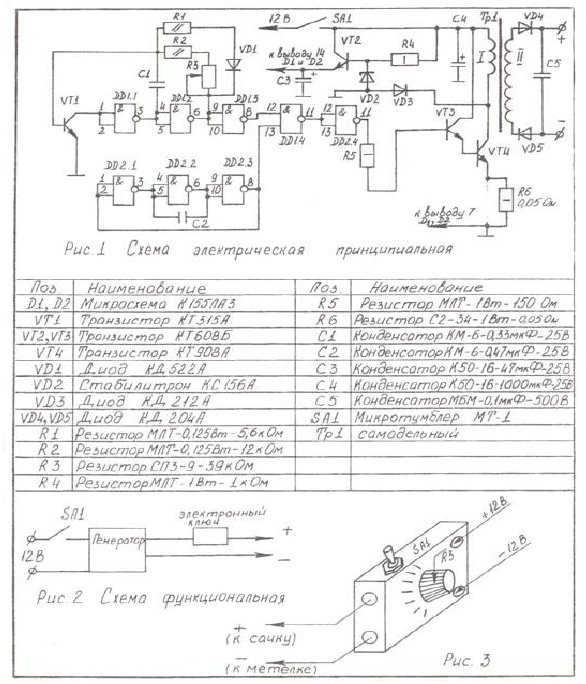 R1
R2
R3
VD1
C1
VT1
DD1.1
DD1.2
DD1.3
DD1.4
DD2.4
DD2.1
DD2.2
DD2.3
C2
12 В
SA1
VT2
к выводу 14
D1 и D2
C3
R4
VD2
VD3
C4
Тр1
I
II
VD4
C5
VD5
VT3
VT4
R5
R6
0,05 Ом
к выводу 7
D1, D2
Рис. 1 Схема электрическая принципиальная
Поз. Наименование Поз. Наименование
D1, D2 Микросхема К155ЛА3 R5 Резистор МЛТ-1Вт-150 Ом
VT1 Транзистор КТ315А R6 Резистор С2-34-1Вт-0,05 Ом
VT2, VT3 Транзистор КТ608Б C1 Конденсатор КМ-6-0,33мкФ-25В
VT4 Транзистор КТ908А C2 Конденсатор КМ-6-0,47мкФ-25В
VD1 Диод КД522А C3 Конденсатор К50-16-47мкФ-25В
VD2 Стабилитрон КС156А C4 Конденсатор К50-16-1000мкФ-25В
VD3 Диод КД212А C5 Конденсатор МБМ-0,1мкФ-500В
VD4, VD5 Диод КД204А SA1 Микротумблер МТ-1
R1 Резистор МЛТ-0,125Вт-5,6кОм Тр1 самодельный
R2 Резистор МЛТ-0,125Вт-12кОм
R3 Резистор СП3-9-39кОм
R4 Резистор МЛТ-1Вт-1кОм
SA1
12В
Генератор
электронный
ключ
+
−
Рис. 2 Схема функциональная
SA1
R3
+12В
-12В
+
(к сачку)
−
(к метелке)
Рис. 3